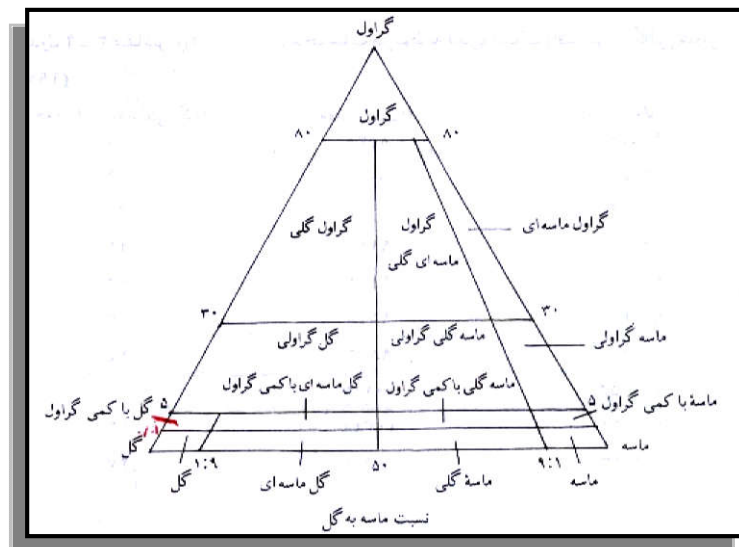 گراول
گراول
۸۰
۸۰
گراول گلی
گراول
ماسه ای گلی
گراول ماسه ای
۳۰
۳۰
گل گراولی
ماسه گلی گراولی
ماسه گراولی
گل با کمی گراول
۵
گل ماسه ای با کمی گراول
ماسه گلی با کمی گراول
۵
ماسهٔ با کمی گراول
گل
ماسه
گل
۱:۹
گل ماسه ای
۵۰
ماسهٔ گلی
۹:۱
ماسه
نسبت ماسه به گل